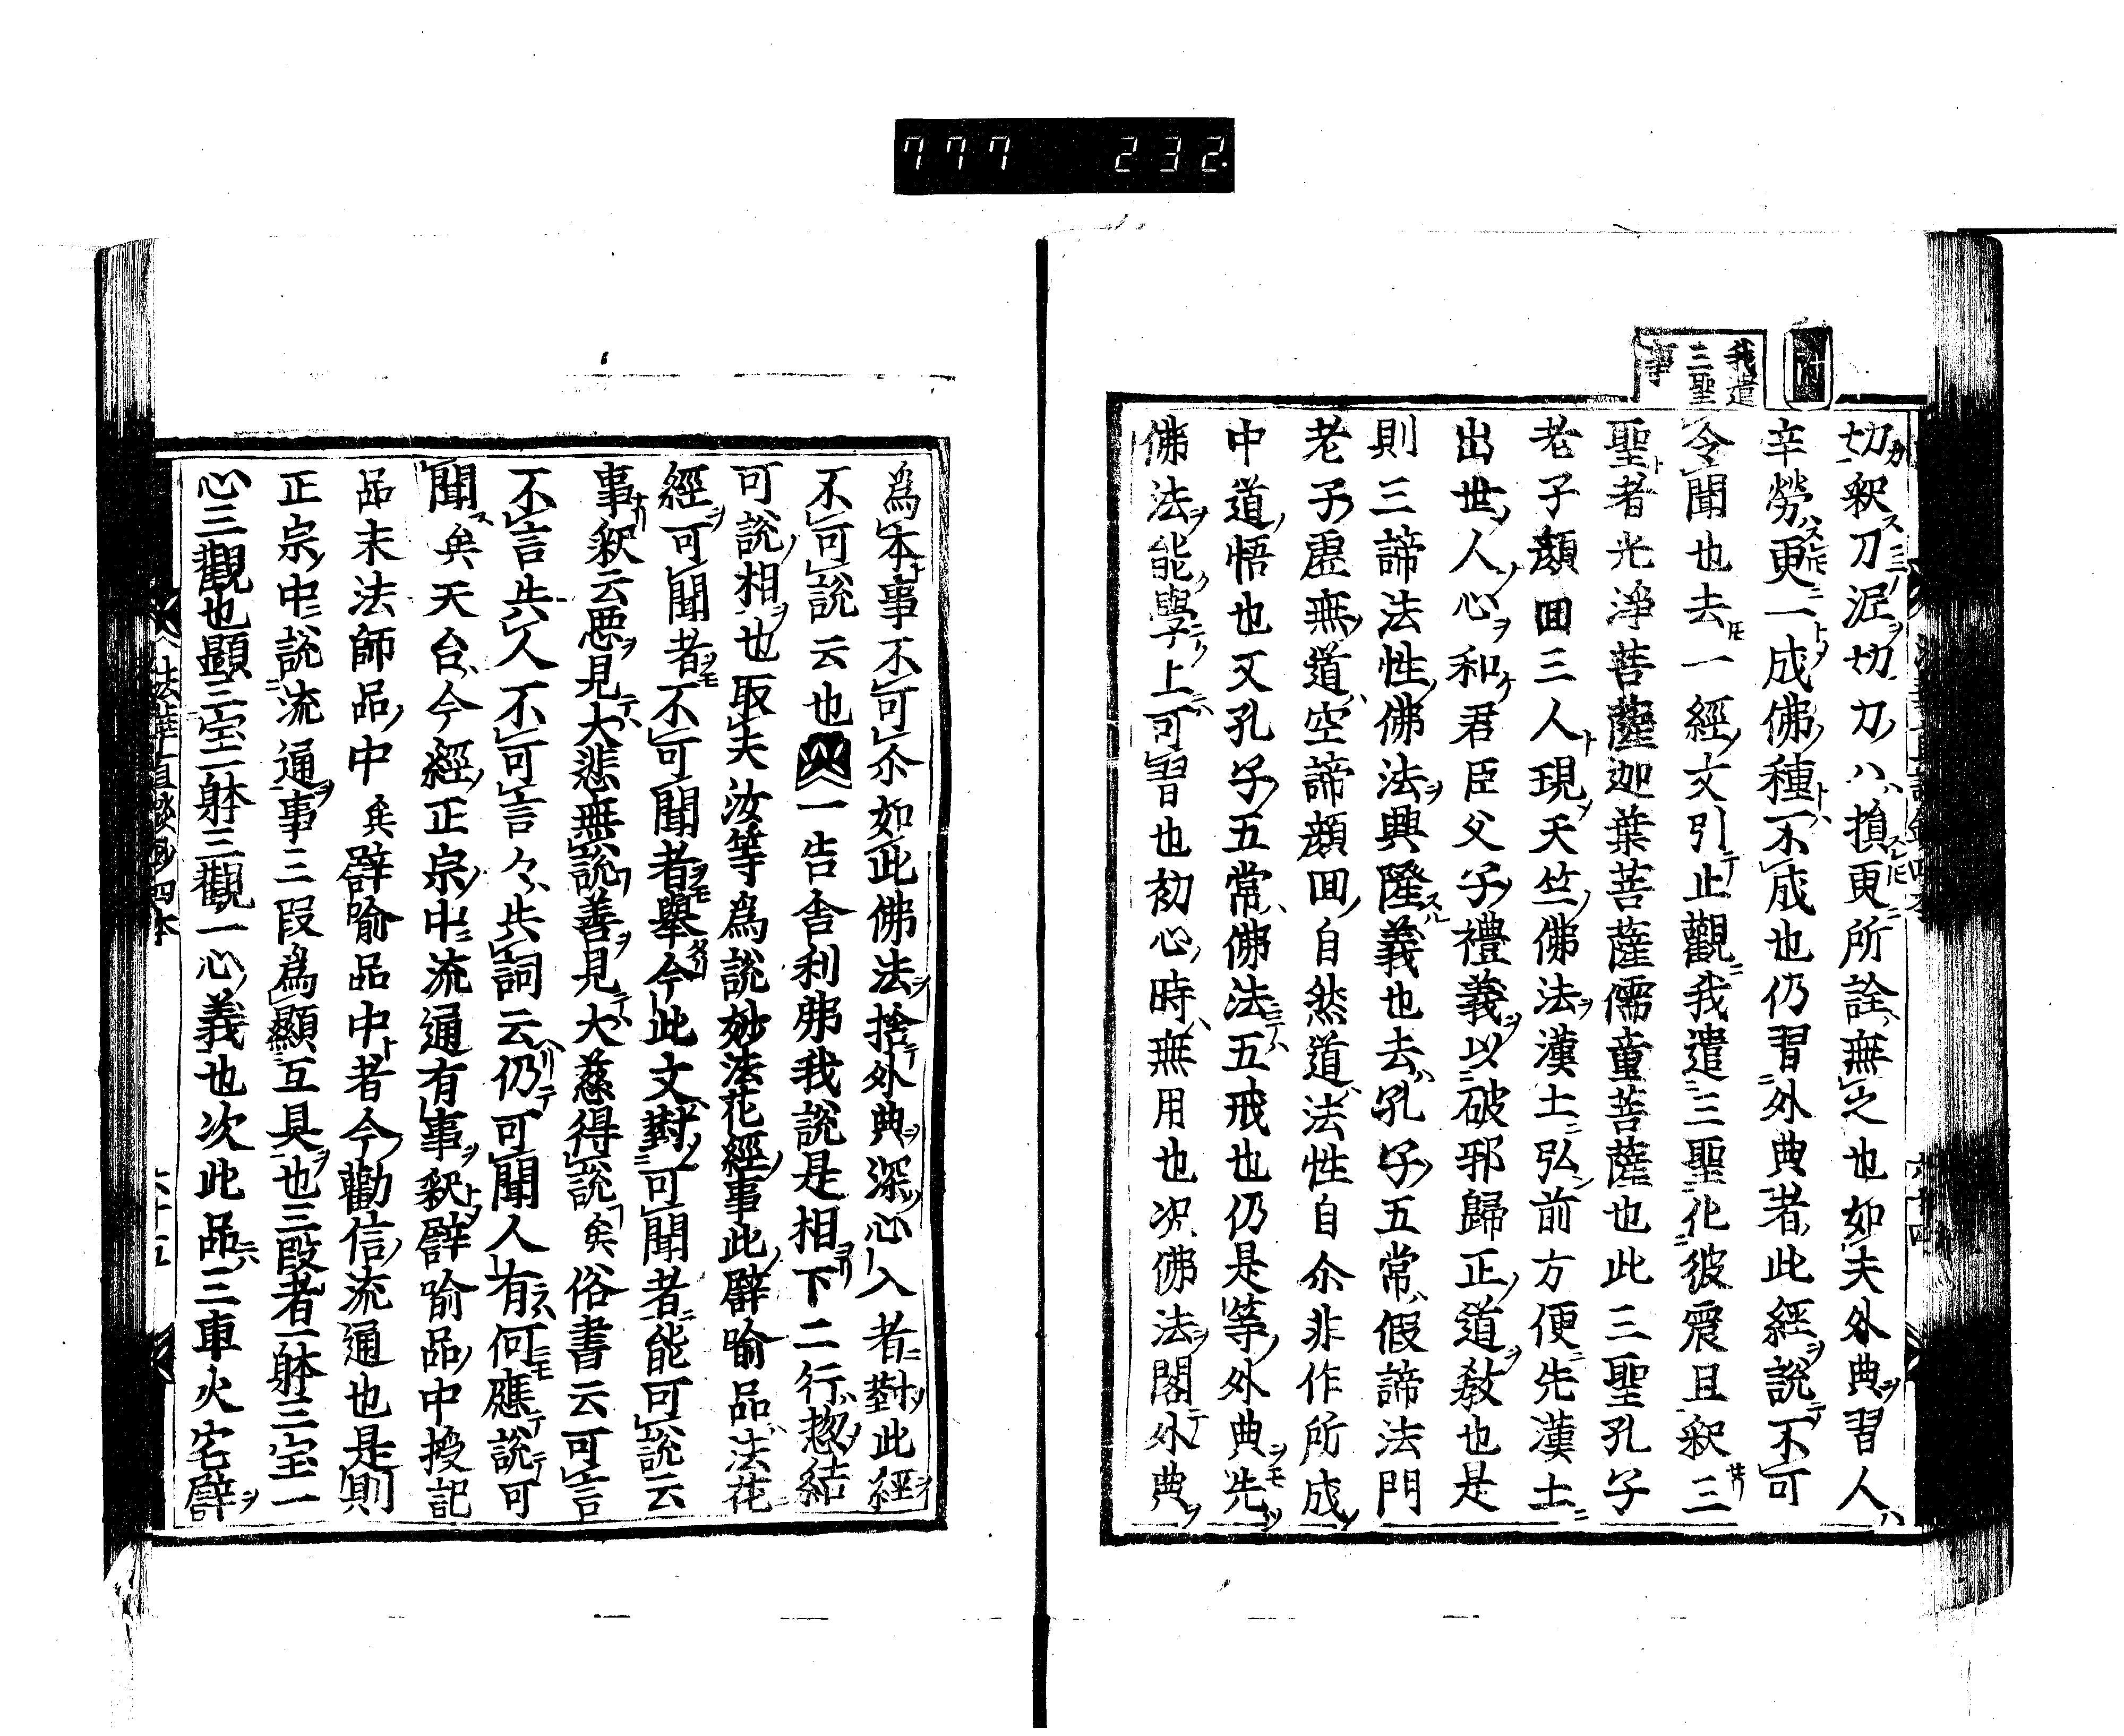 777 232
我遣
三聖
事
切釈刀泥切刀ハ損更所詮無之也如夫外典習人
辛勞更一成佛種不成也仍習外典者此經說不可
令聞也去一經文引止觀我遣三聖化彼震旦釈三
聖者光淨菩薩迦葉菩薩儒童菩薩也此三聖孔子
老子顏回三人現天竺佛法漢土弘前方便先漢土
出世人心和君臣父子禮義以破邪歸正道教也是
則三諦法性佛法興隆義也去孔子五常假諦法門
老子虛無道空諦顏回自然道法性自尒非作所成
中道悟也又孔子五常佛法五戒也仍是等外典先
佛法能學上可習也初心時無用也次佛法閣外典
為本事不可尒如此佛法捨外典深心入者對此經
不可說云也一告舍利弗我說是相下二行惣結
可說相也取夫汝等為說妙法花經事此譬喻品法花
經可聞者不可聞者舉今此文對可聞者能可說云
事釈云悪見大悲無說善見大慈得說矣俗書云可言
不言失人不可言々失詞云仍可聞人有何應說可
聞矣天台今經正宗中流通有事釈譬喻品中授記
品末法師品中矣譬喻品中者今勸信流通也是則
正宗中說流通事三叚為顯互具也三段者一躰三宝一
心三觀也顯三宝一躰三觀一心義也次此品三車火宅譬
法華直談鈔四本
六十五